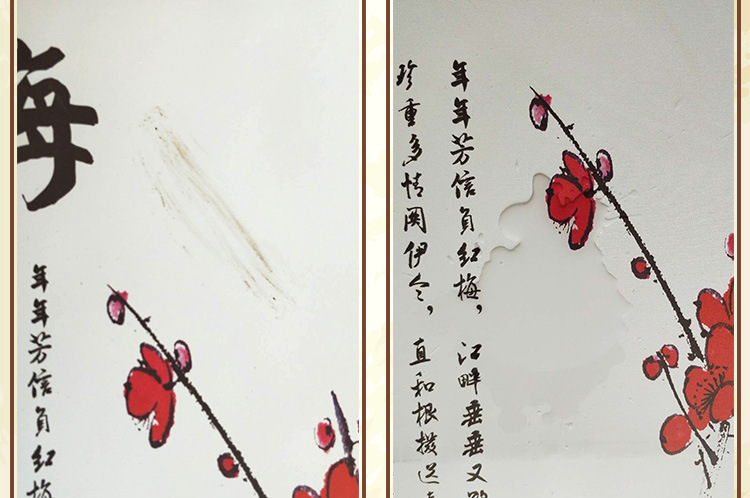 年年芳信負红梅
年年芳信負红梅，江畔垂垂又
珍重多情関伊令，直和根撥送